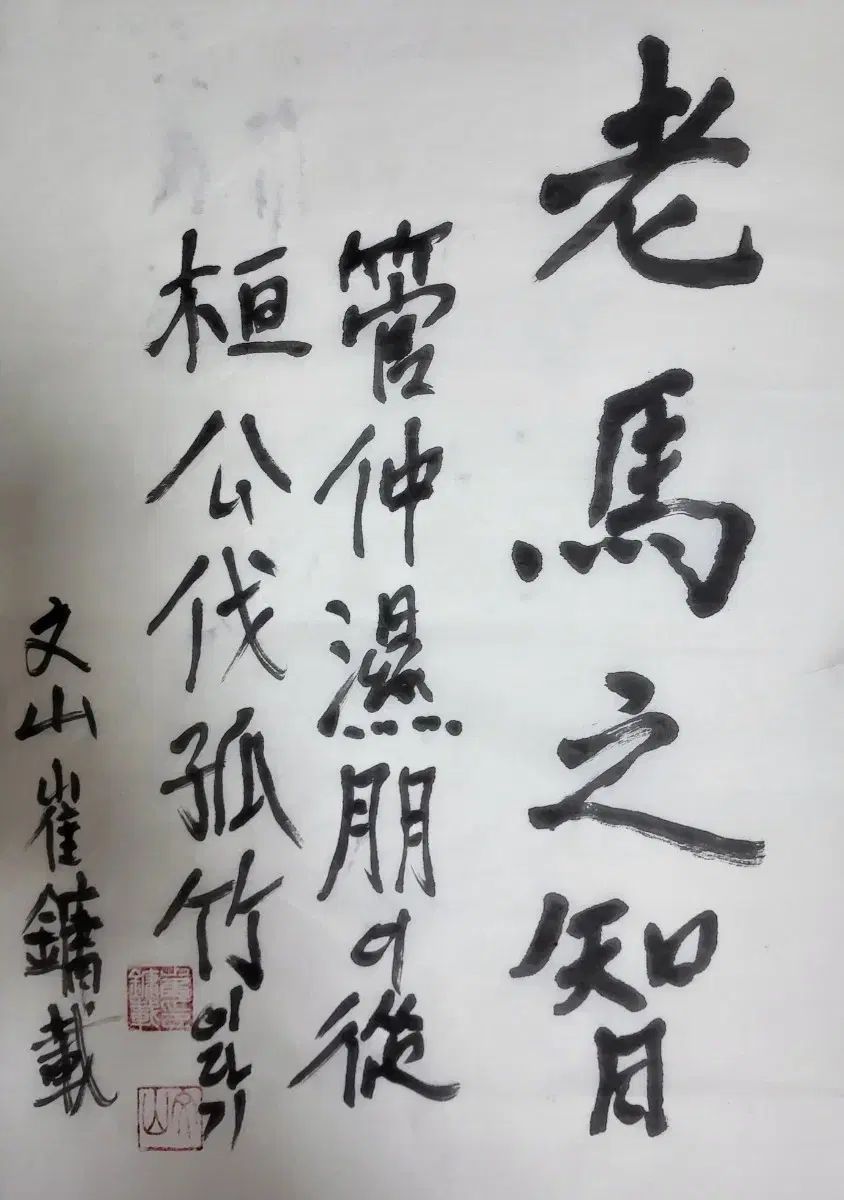 老馬之智
管仲濕朋이從
桓公伐孤竹이라기
文山 崔鏞載
文山